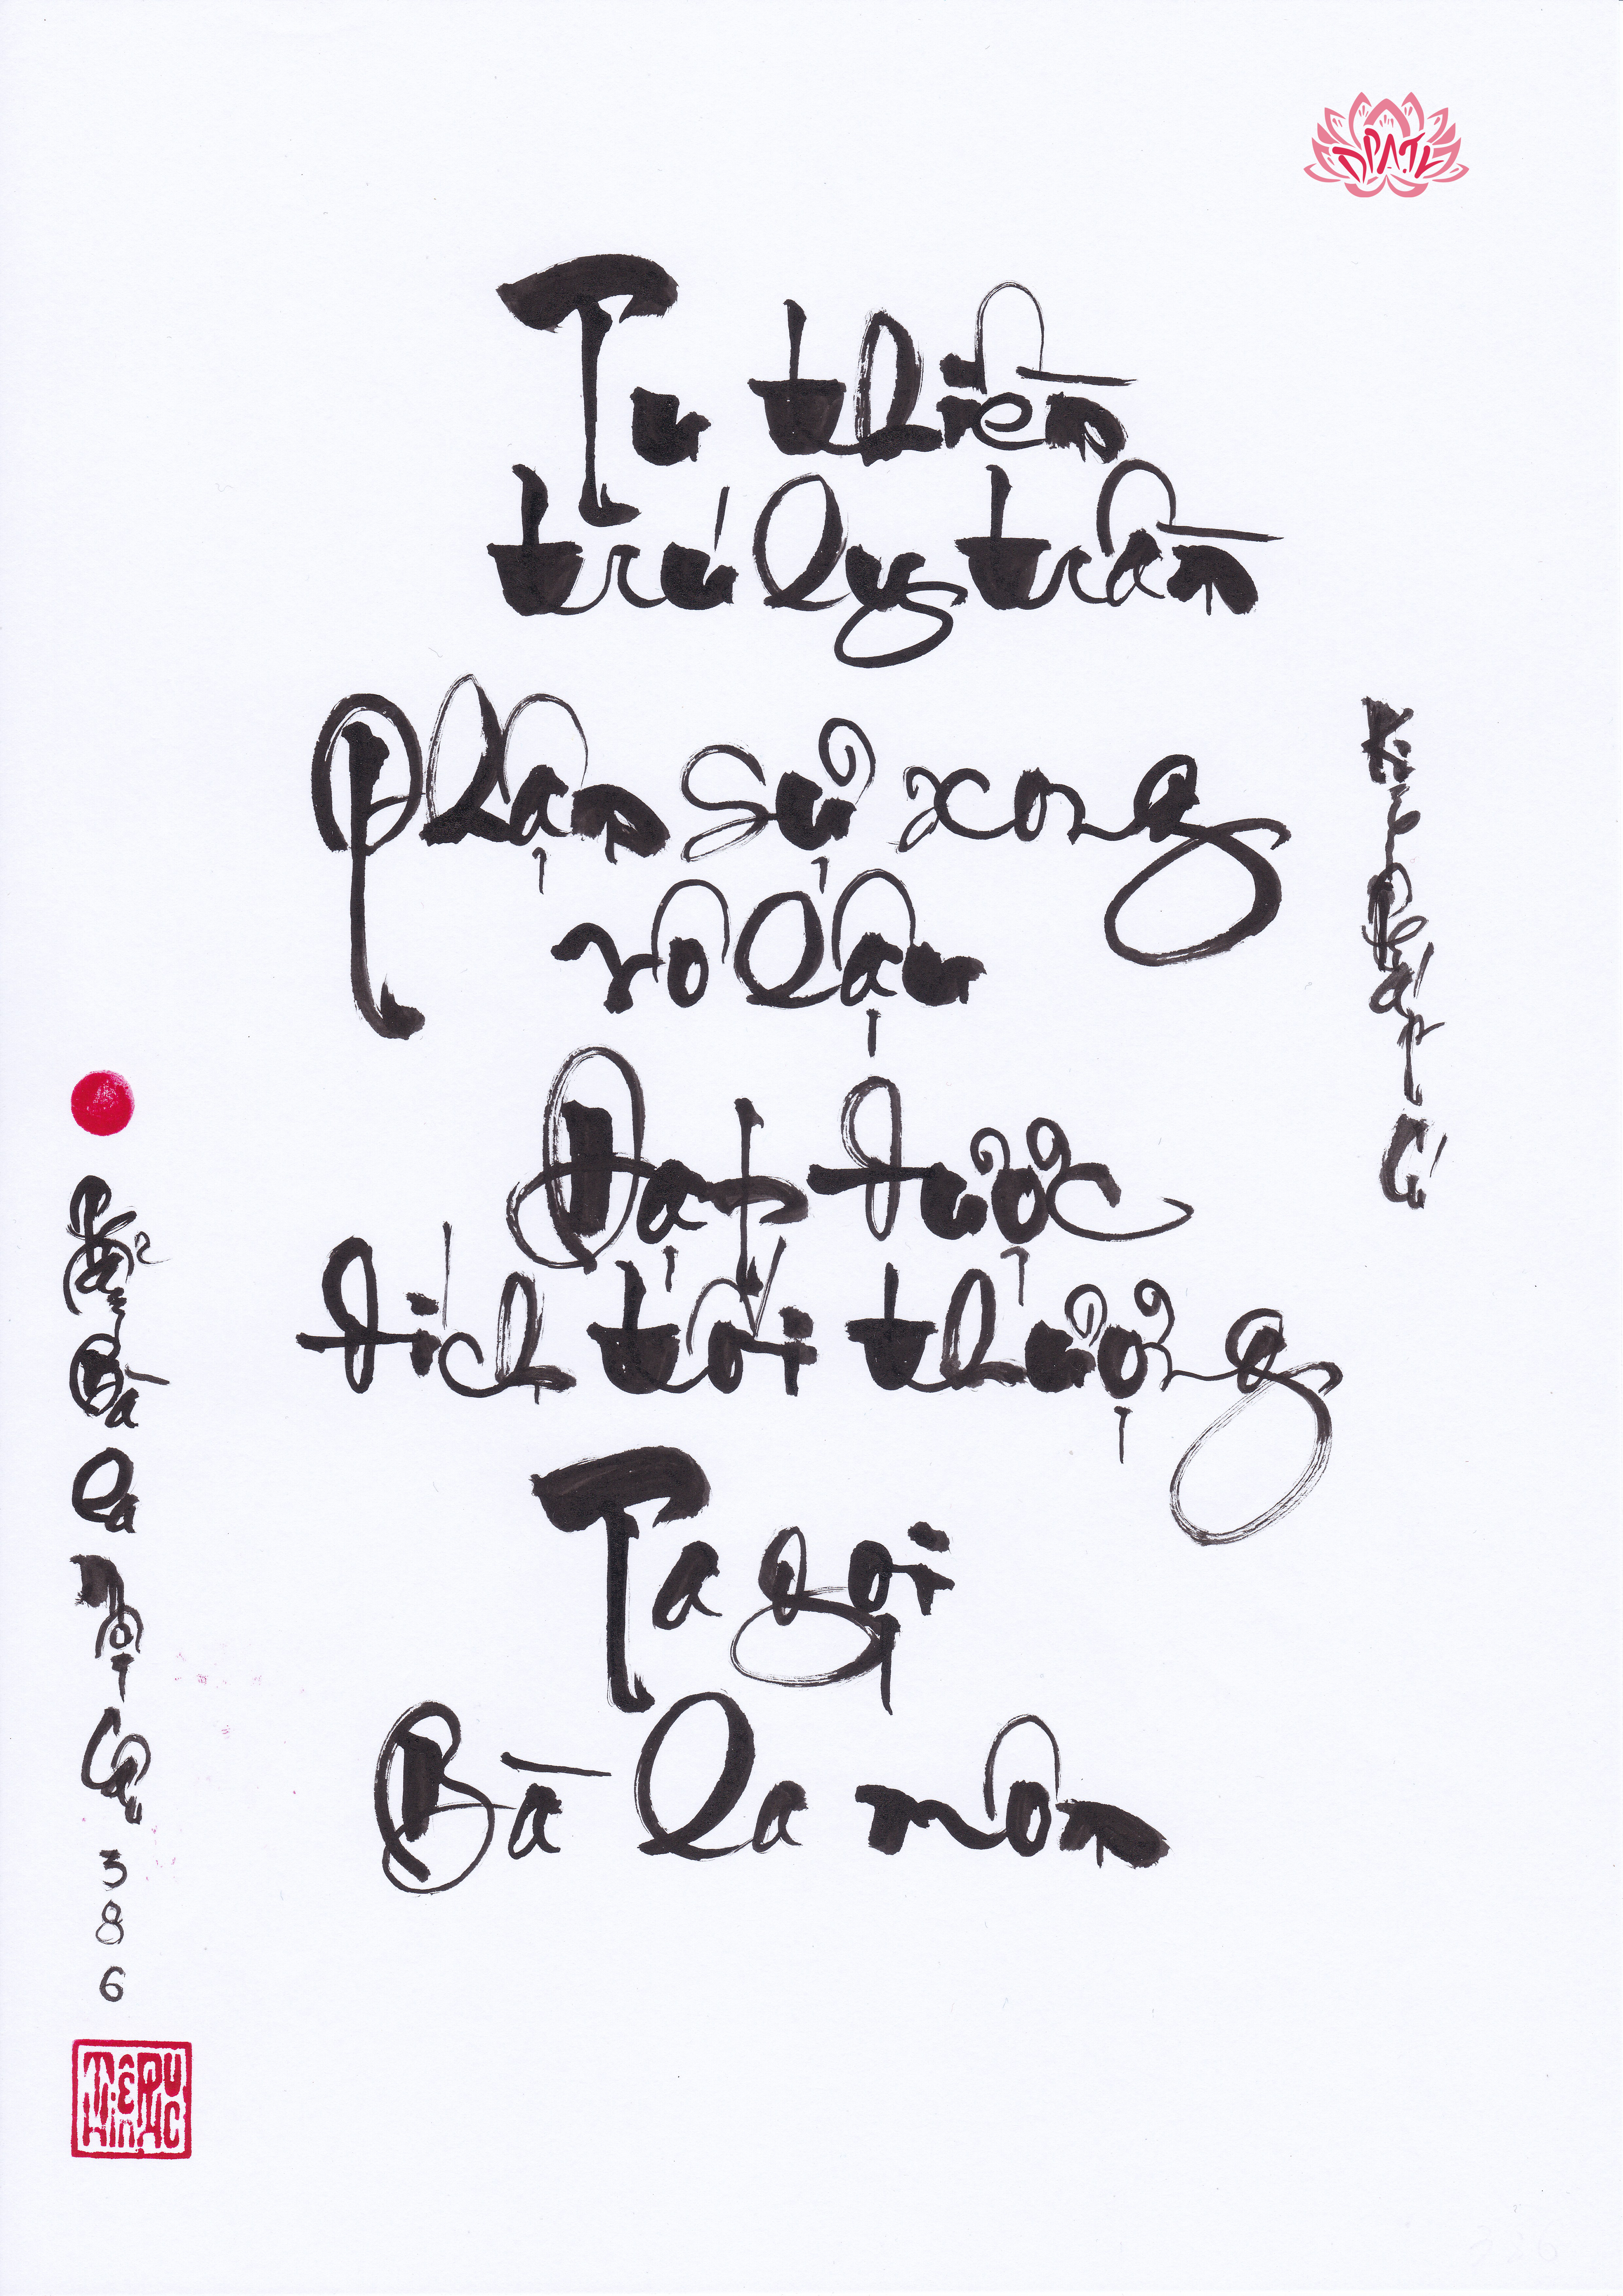 Tu thiền
trú ly trần
Phận sự xong
vô lậu
Đạt được
đích tối thượng
Ta gọi
Bà la môn
Kinh Pháp Cú
Phẩm Bà La Môn Câu 386